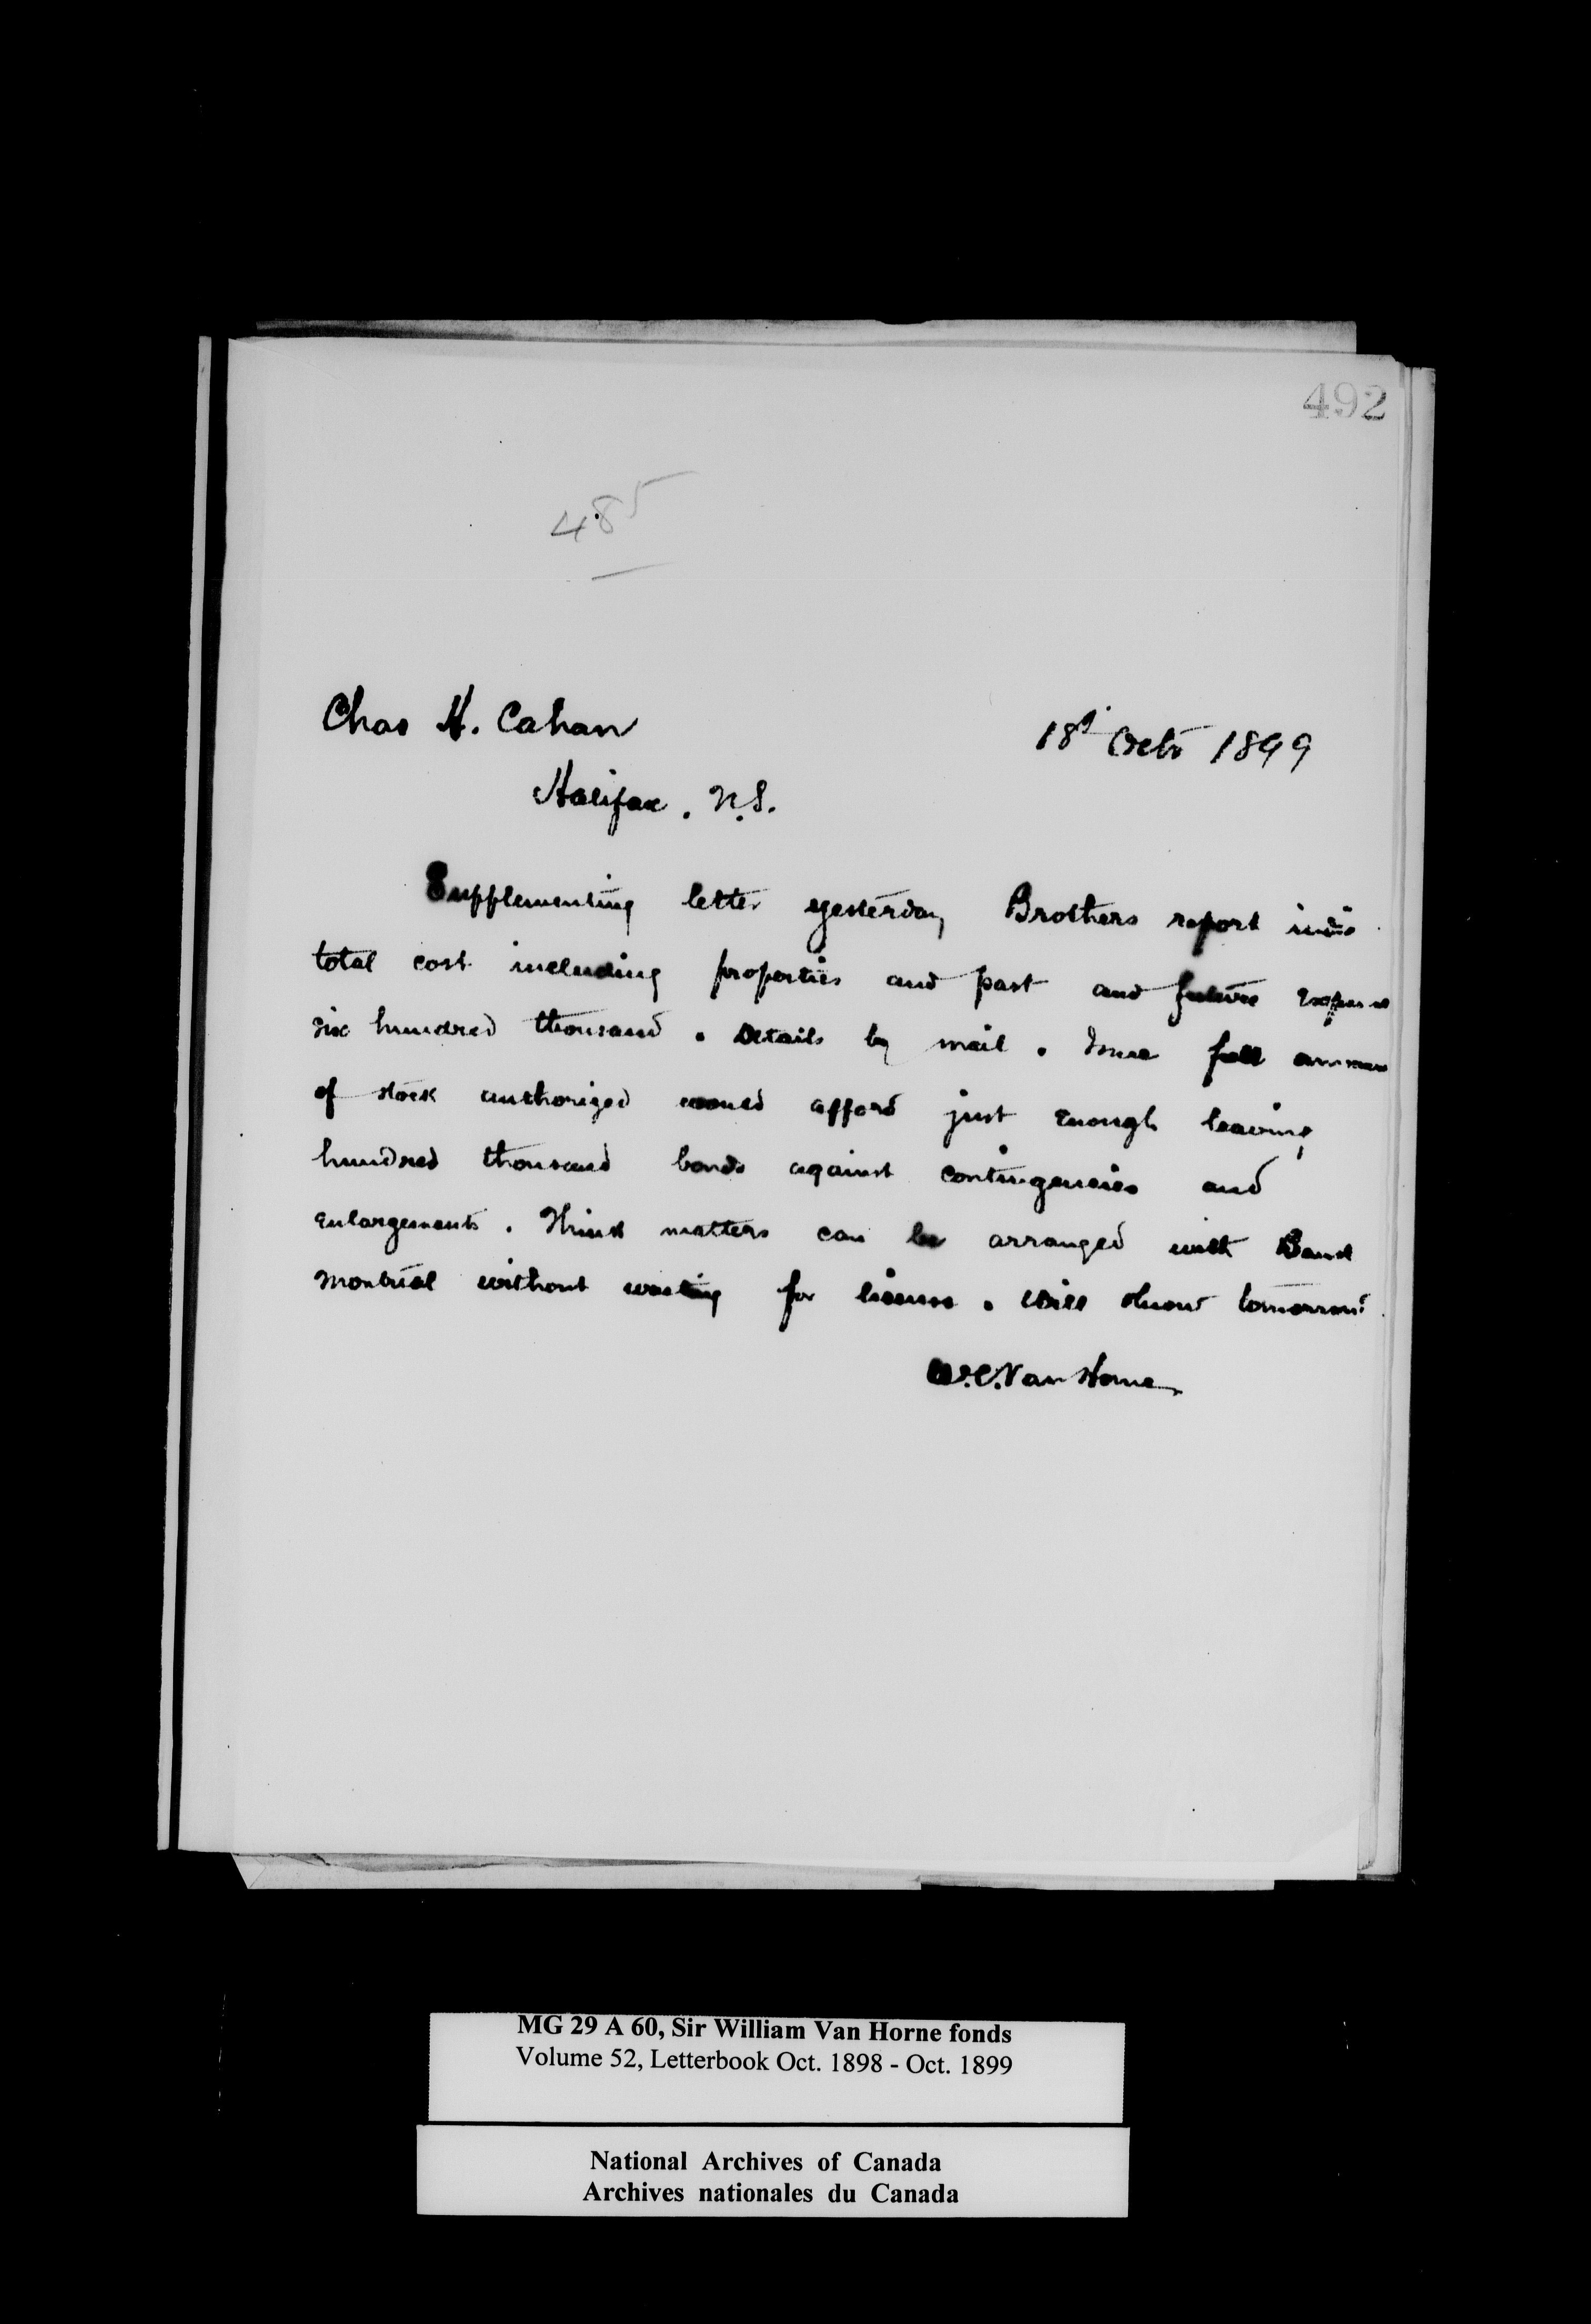 492
485
Chas H. Cahan
18th Octr 1899
Halifax. N.S.
Supplementing letter yesterday Brothers report
total cost including properties and past and future expense
six hundred thousand. Details by mail. Issue full
of stock authorized would afford just enough leaving
hundred thousand bonds against contingencies and
enlargements. Think matters can be arranged with Bank
Montreal without waiting for license. Will know tomorrow.
W.C. Van Horne
MG 29 A 60, Sir William Van Horne fonds
Volume 52, Letterbook Oct. 1898 - Oct. 1899
National Archives of Canada
Archives nationales du Canada